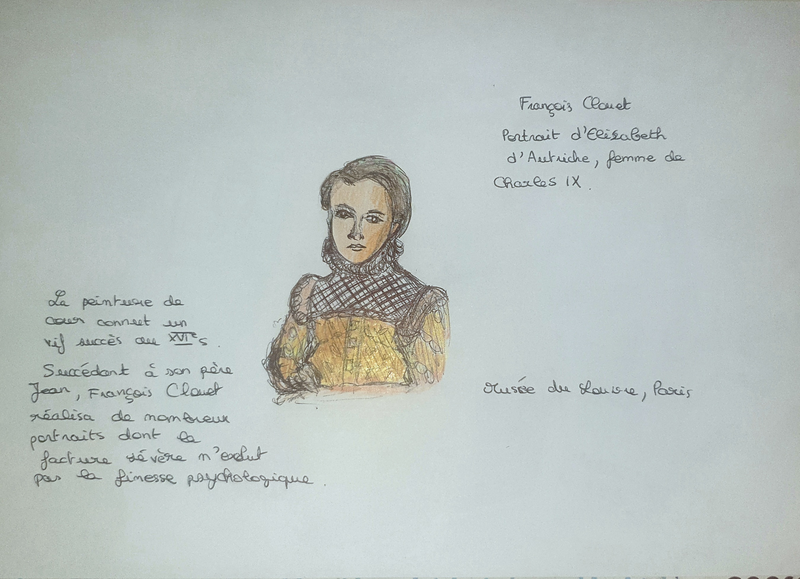 François Clouet
Portrait d'Elisabeth
d'Autriche, femme de
Charles IX.
La peinture de
cour connut un
vif succès au XVIe s.
Succédant à son père
Jean, François Clouet
réalisa de nombreux
portraits dont la
facture sévère n'exclut
pas la finesse psychologique.
Musée du Louvre, Paris